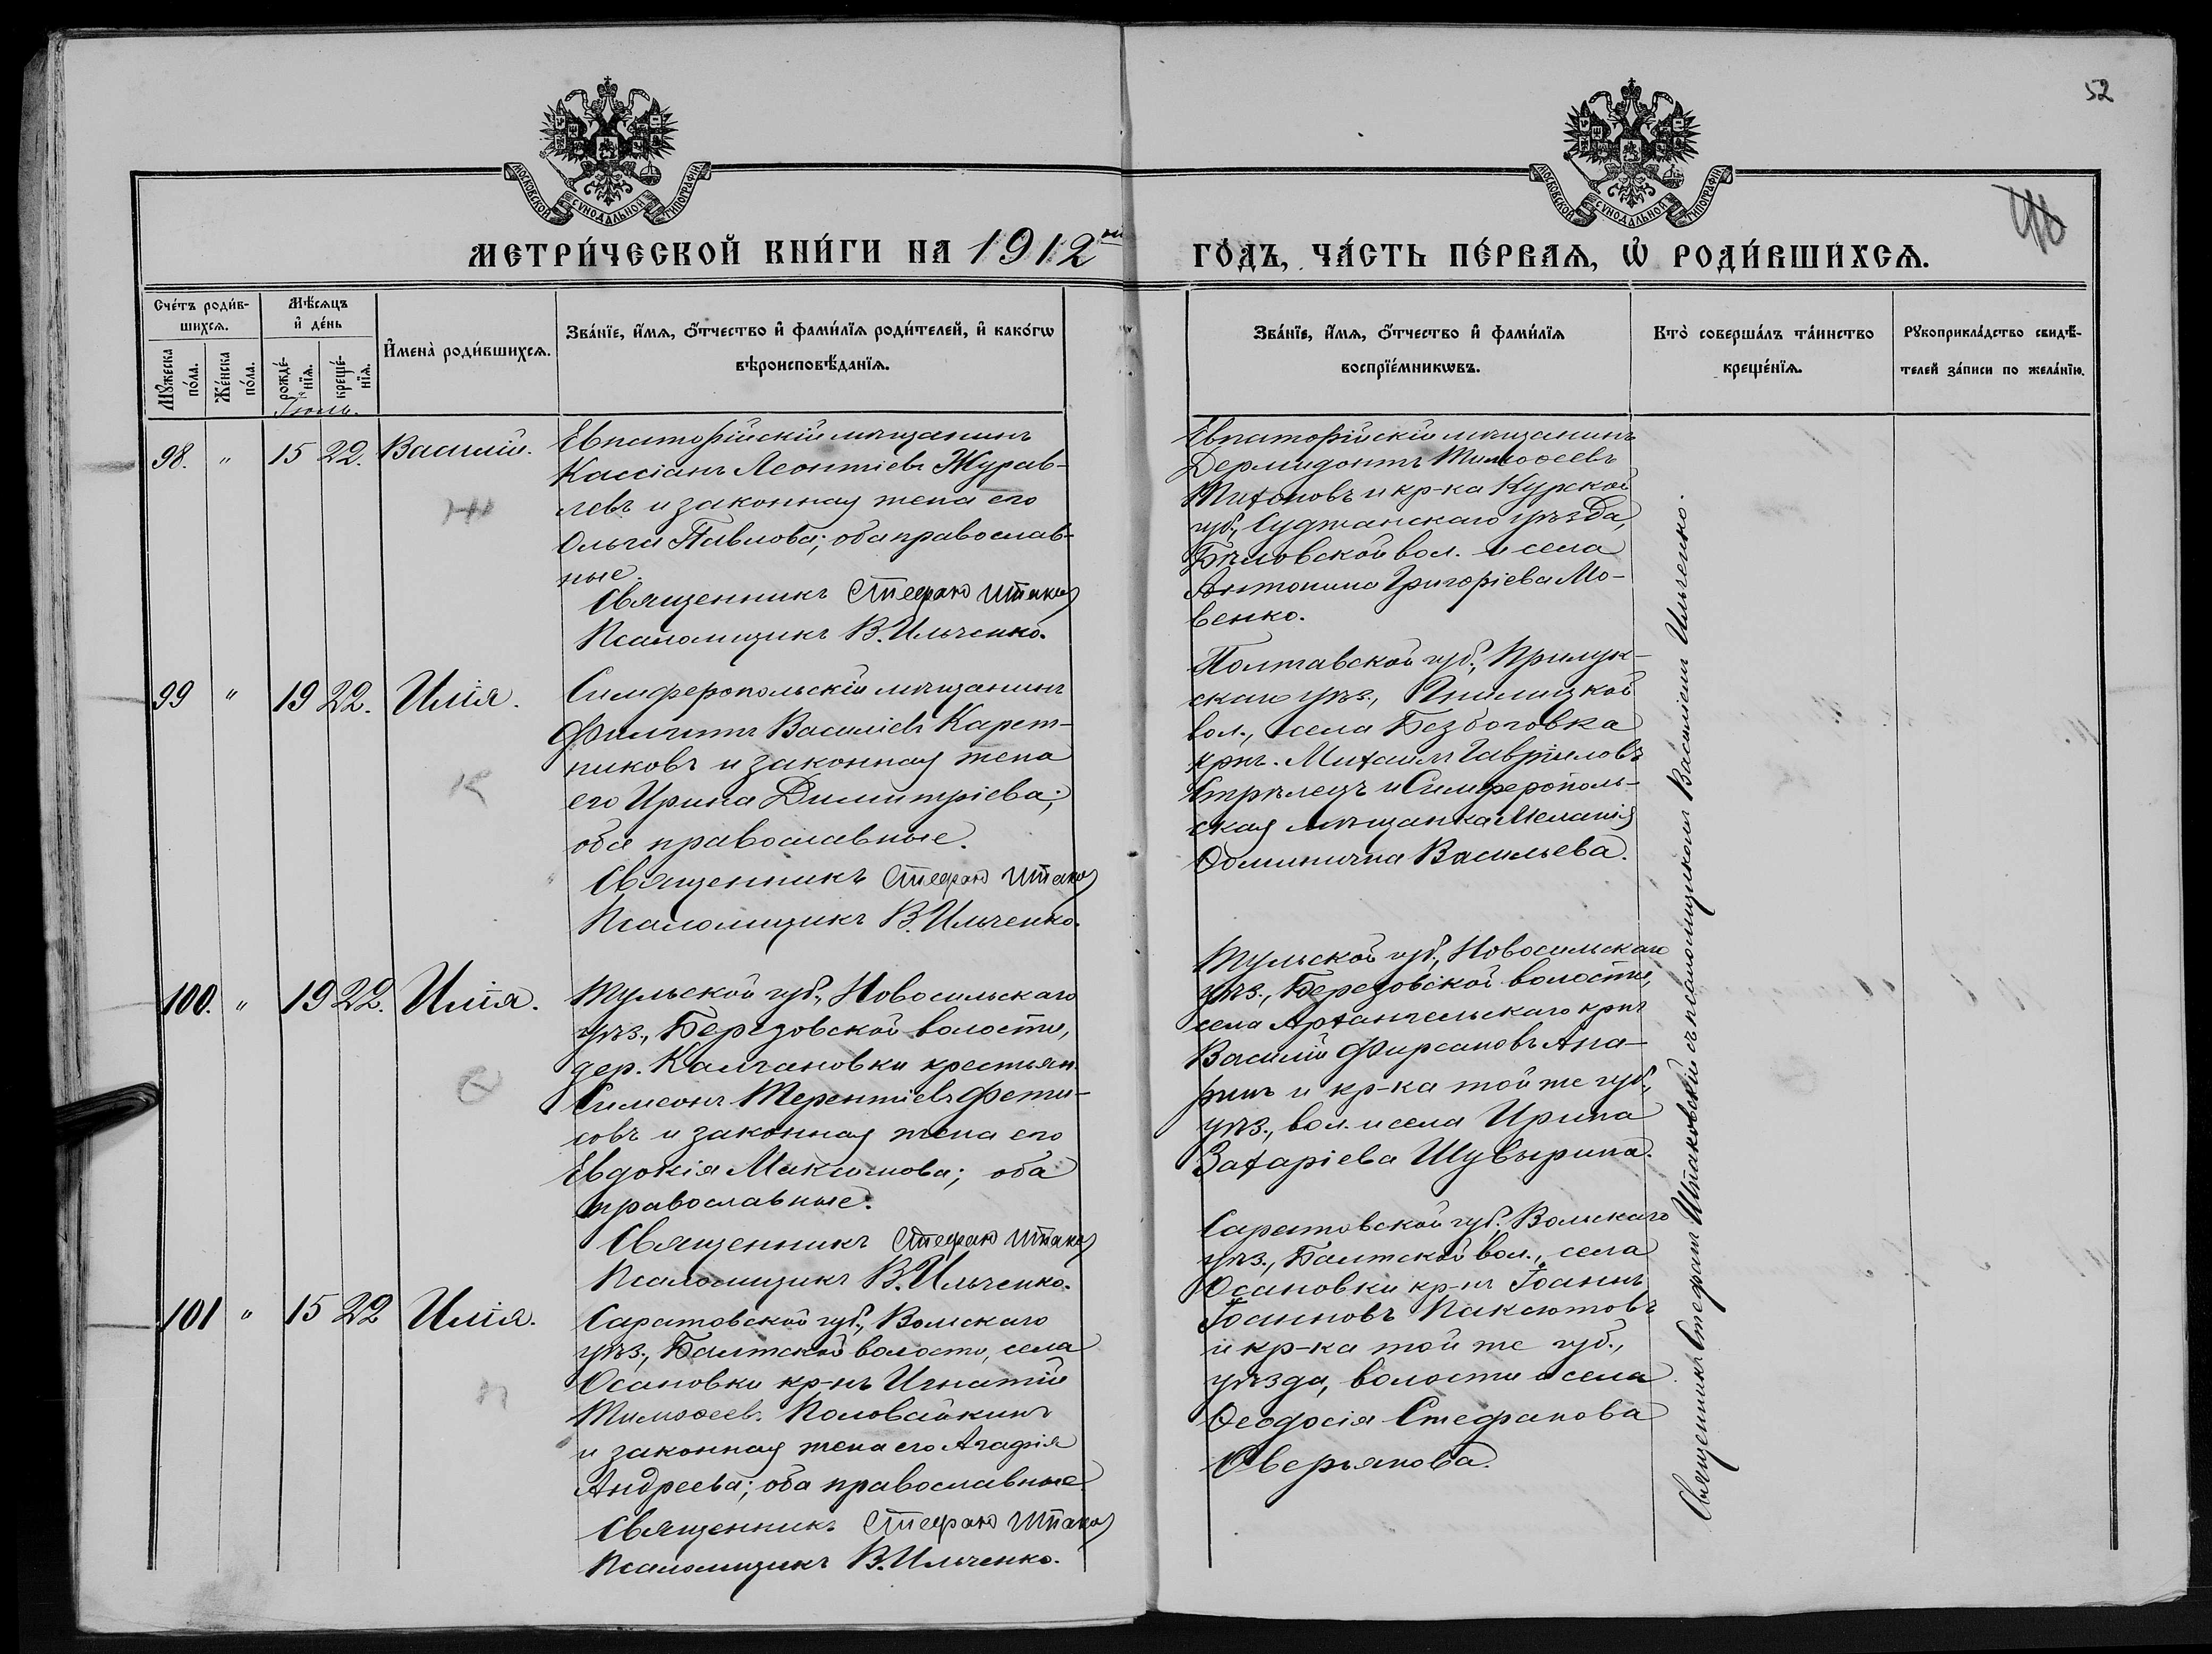 52
46
МОСКОВСКОЙ СѴНОДАЛЬНОЙ ТИПОГРАФІИ
МОСКОВСКОЙ СѴНОДАЛЬНОЙ ТИПОГРАФІИ
МЕТРИ́ЧЕСКОЙ КНИ́ГИ НА 1912 ый
ГО́ДЪ, ЧА́СТЬ ПЕ́РВАѦ, Ѽ РОДИ́ВШИХСѦ.
Сче́тъ роди́в-
шихсѧ.
Мѣ́сѧцъ
и҆ де́нь
Мꙋ́жеска
по́ла.
Же́нска
по́ла.
рожде́-
нїѧ.
креще́-
нїѧ.
И҆мена̀ роди́вшихсѧ.
Зва́нїе, и҆́мѧ, ѻ҆́тчество и҆ фами́лїѧ роди́телей, и҆ како́гѡ
вѣроисповѣ́данїѧ.
Зва́нїе, и҆́мѧ, ѻ҆́тчество и҆ фами́лїѧ
воспрїе́мникѡвъ.
Кто̀ соверша́лъ та́инство
креще́нїѧ.
Рꙋкоприкла́дство свидѣ́-
телей за́писи по жела́нїю.
Іюль.
98. " 15 22. Василій.
Евпаторійскій мѣщанинъ
Кассіанъ Леонтіевъ Журав-
левъ и законная жена его
Ольга Павлова; оба православ-
ные.
Священникъ Стефанъ Штаков
Псаломщикъ В. Ильченко.
Евпаторійскій мѣщанинъ
Дермидонтъ Тимоѳеевъ
Тихоновъ и кр-ка Курской
губ., Суджанскаго уѣзда,
Бѣловской вол. и села
Антонина Григоріева Мо-
венко.
Ж
99 " 19 22. Илія.
Симферопольскій мѣщанинъ
Филиппъ Василіевъ Карет-
никовъ и законная жена
его Ирина Димитріева;
оба православные.
Священникъ Стефанъ Штаков
Псаломщикъ В. Ильченко.
Полтавской губ., Прилук-
скаго уѣз.,
вол., села Безбоговка
крнъ. Михаилъ Гавріиловъ
Стрѣлецъ и Симферополь-
ская мѣщанка Меланія
Ѳоминична Васильева.
К
100. " 19 22. Илія.
Тульской губ., Новосильскаго
уѣз., Березовской волости,
дер. Калгановки крестьян.
Симеонъ Терентіевъ Фети-
совъ и законная жена его
Евдокія Максимова; оба
православные.
Священникъ Стефанъ Штаков
Псаломщикъ В. Ильченко.
Тульской губ., Новосильскаго
уѣз., Березовской волости,
села Архангельскаго крнъ
Василій Фирсановъ Апа-
ринъ и кр-ка той же губ.,
уѣз., вол. и села Ирина
Захаріева Шувырина.
Ф
101 " 15 22 Илія.
Саратовской губ., Вольскаго
уѣз., Балтской волости, села
Осановки кр-нъ Игнатій
Тимоѳеев. Половайкинъ
и законная жена его Агафія
Андреева; оба православные.
Священникъ Стефанъ Штаков
Псаломщикъ В. Ильченко.
Саратовской губ. Вольскаго
уѣз., Балтской вол., села
Осановки кр-нъ Іоаннъ
Іоанновъ Паксютовъ
и кр-ка той же губ.,
уѣзда, волости и села
Ѳеодосія Стефанова
Оверьянова.
П
Священникъ Стефанъ Штаковскій съ псаломщикомъ Василіемъ Ильченко.